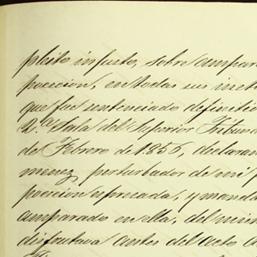 pleito injusto, sobre ampar
posecion, en todas sus inst
que fué sentenciado definiti
2ª. Sala del Superior Tribun
de Febrero de 1855, declaran
menez perturbador de mi p
posecion referida, y manda
amparado en ella, del mism
disfrutava antes del acto